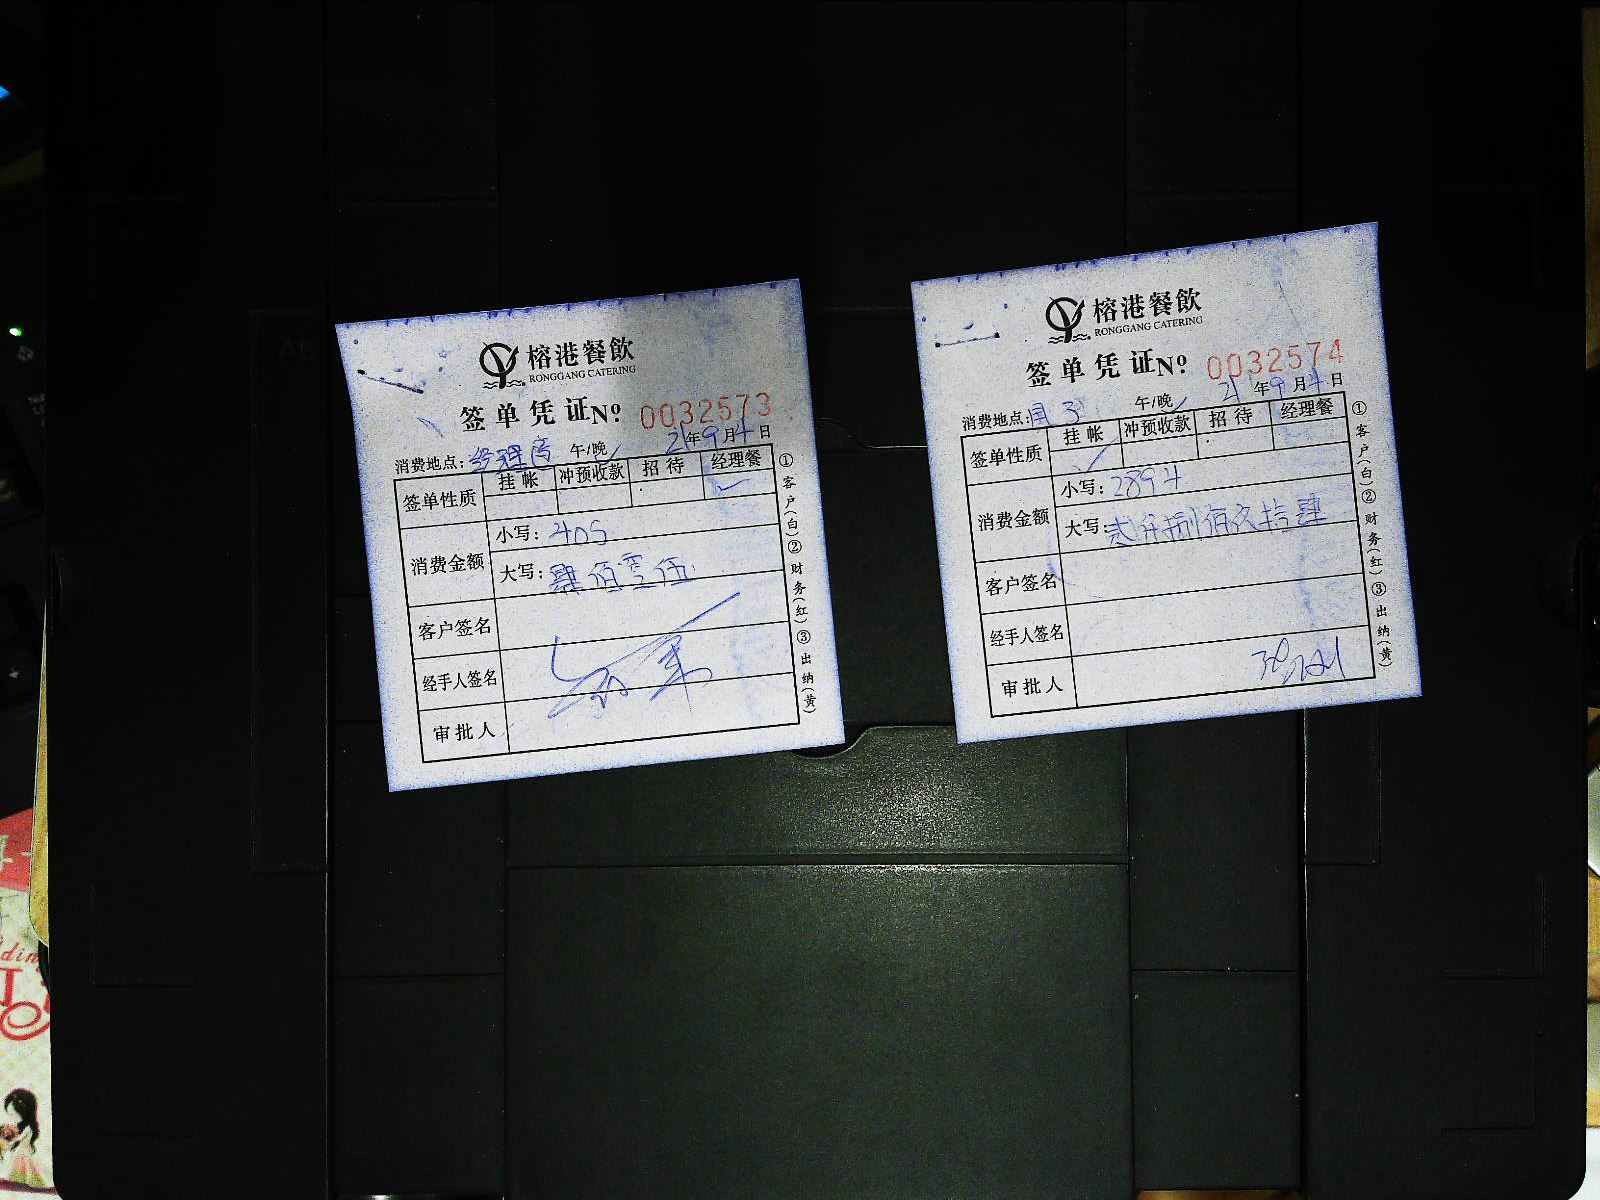 榕港餐飲
RONGGANG CATERING
签单凭证№ 0032573
21年9月4日
消费地点: 经理房 午/晚
签单性质 挂帐 冲预收款 招待 经理餐
✓
消费金额
小写: 405
大写: 肆佰零伍
客户签名
经手人签名
审批人
①客户(白)②财务(红)③出纳(黄)
榕港餐飲
RONGGANG CATERING
签单凭证№ 0032574
21年9月4日
消费地点: 午/晚
签单性质 挂帐 冲预收款 招待 经理餐
✓
消费金额
小写: 2894
大写: 贰仟捌佰玖拾肆
客户签名
经手人签名
审批人
①客户(白)②财务(红)③出纳(黄)